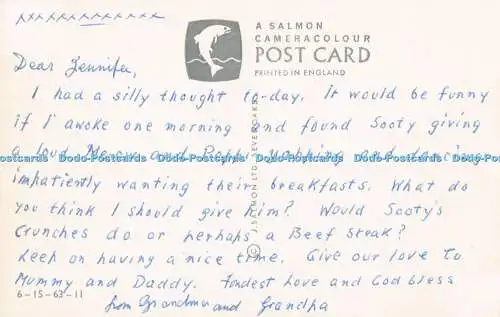 xxxxxxxxxxxxx
A SALMON
CAMERACOLOUR
POST CARD
PRINTED IN ENGLAND
Dear Jennifer,
I had a silly thought to-day. It would be funny
if I awoke one morning and found Sooty giving
a loud and and
Dodo-Postcards Dodo-Postcards Dodo-Postcards Dodo-Postcards Dodo-Postcards
impatiently wanting their breakfasts. What do
you think I should give him? Would Sooty's
Crunches do or perhaps a Beef Steak?
Keep on having a nice time. Give our love to
Mummy and Daddy. Fondest Love and God bless
from Grandma and Grandpa
6-15-63-11
© J. SALMON LTD. SEVENOAKS